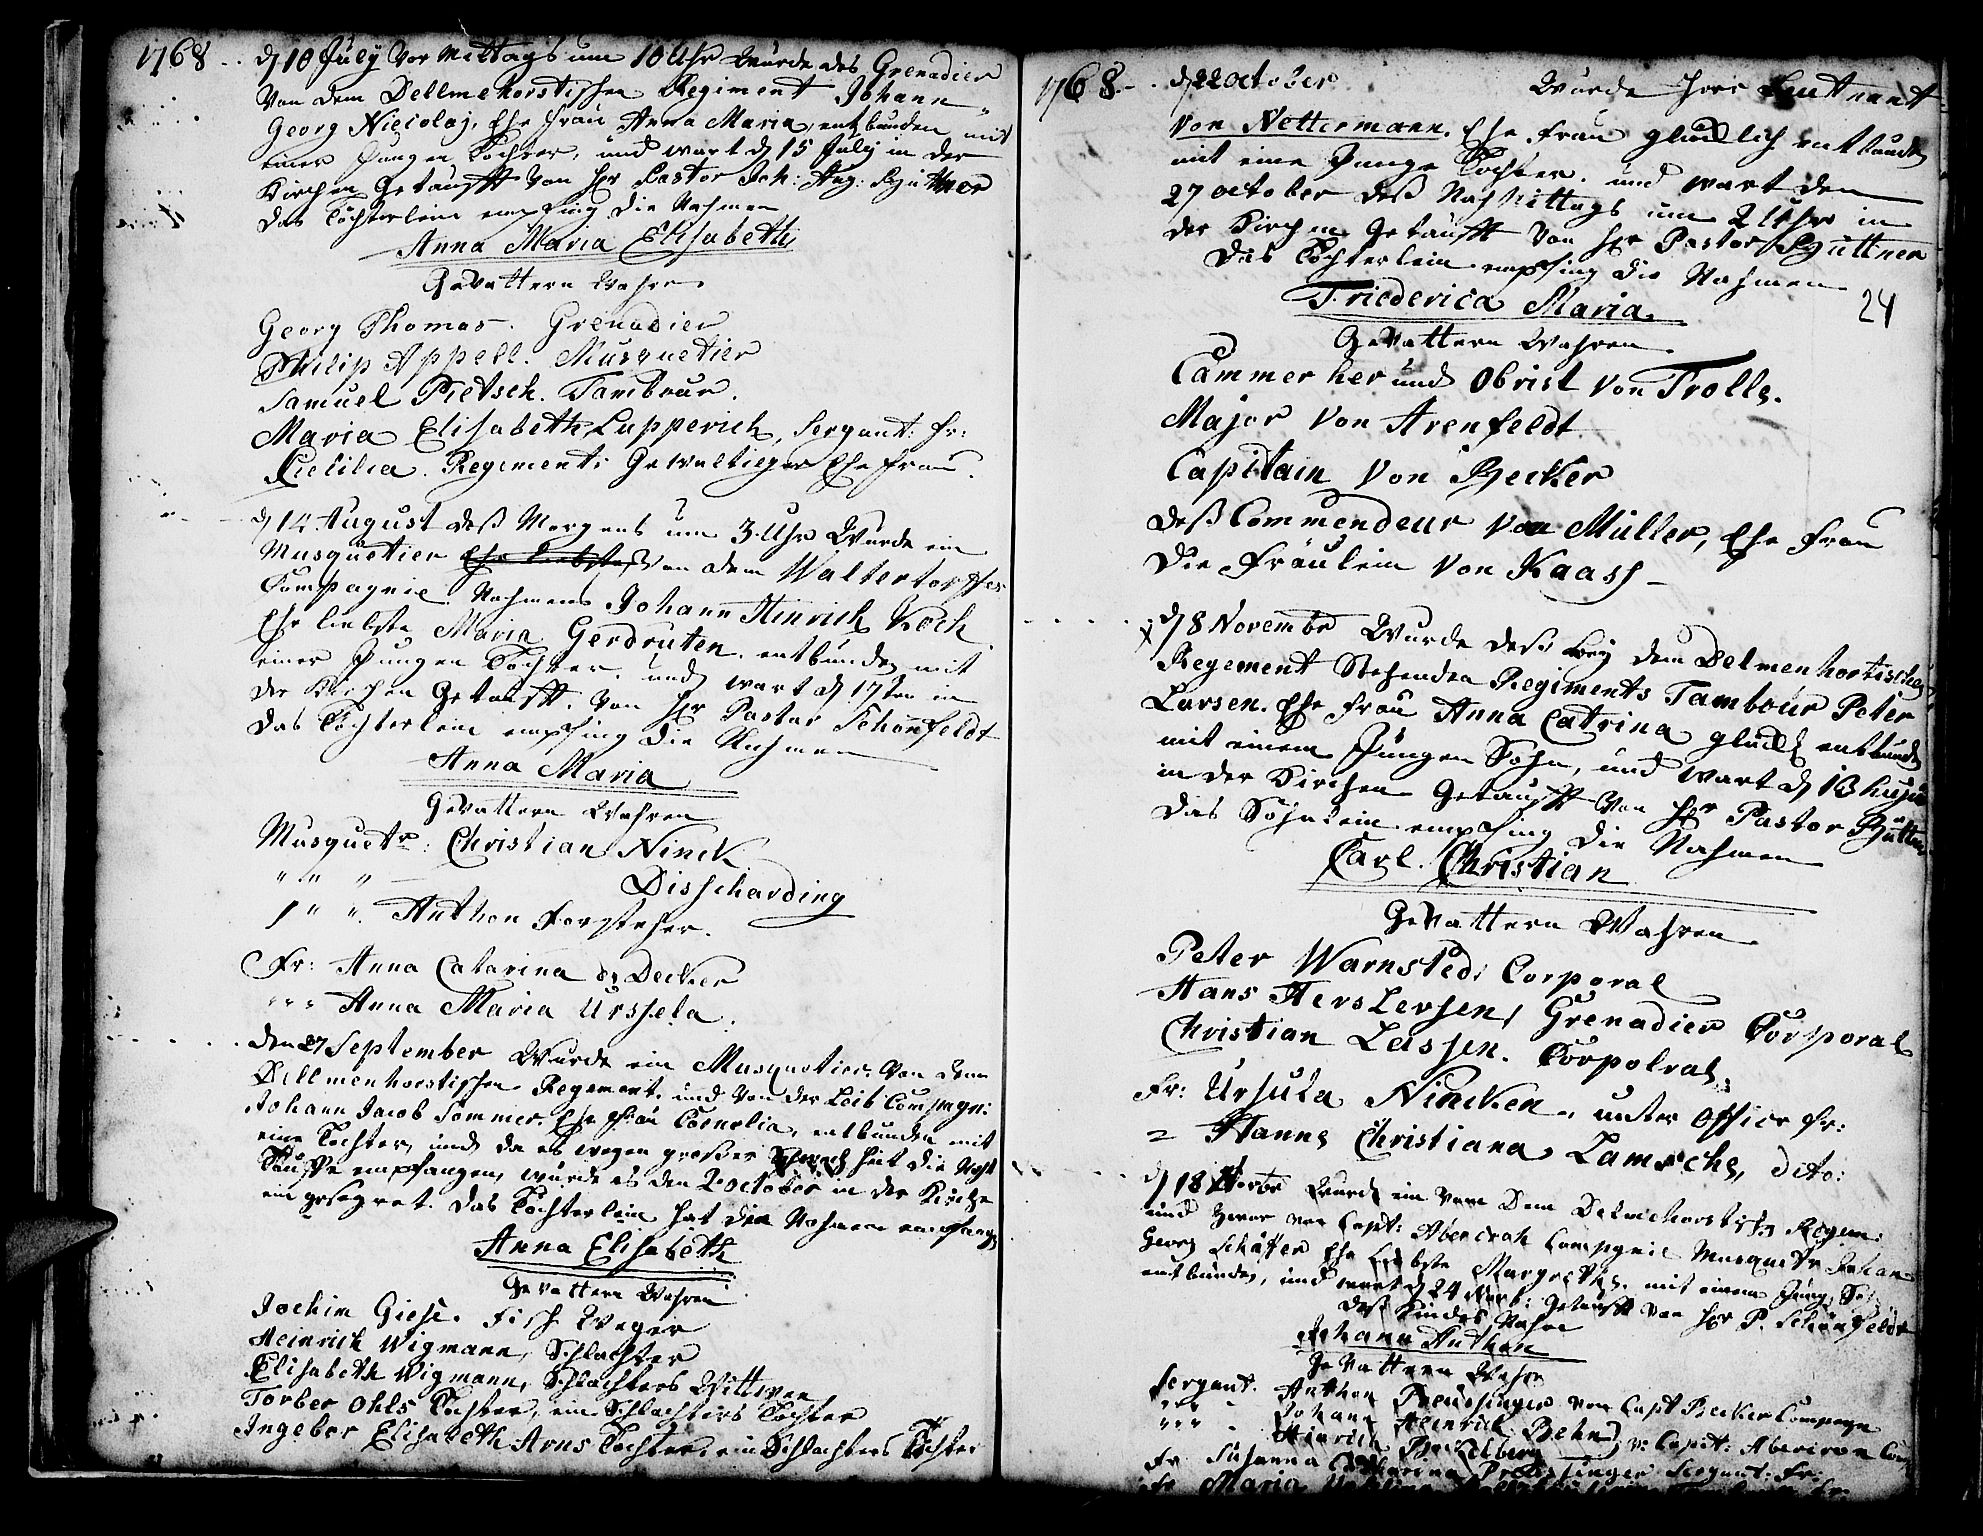 1768 d 10 July Vor Mittags um 10 Uhr Wurde des Grenadier
Von dem Dellmehorstischen Regiment Johann
Georg Nicolaj, Ehe frau Anna Maria, entbunden mit
einer Jungen Tochter, und wart d 15 July in der
Kirchen Getaufft Von Hr Pastor Joh: Aug: Büttner
das Töchterlein empfing die Nahmen
Anna Maria Elisabeth
Gevattern Wahren
Georg Thomas. Grenadier
Philip Appell. Musquetier
Samuel Pietsch. Tambour.
Maria Elisabeth Lapperich, Sergant: fr:
Cicilia. Regiments Gewaltieger Ehe frau.
d 14 August deß Morgens um 3 Uhr Wurde ein
Musquetier Ehe liebste Von dem Waltertorffer
Compagnie Nahmens Johann Hinrich Koch
Ehe liebste Maria Gerdruten. entbunden mit
einer Jungen Tochter. und wart d 17ten in
der Kirchen Getaufft. Von Hr Pastor Schönfeldt
das Töchterlein empfing die Nahmen
Anna Maria
Gevattern Wahren
Musquetr: Christian Ninck
" " " Disscharding
" " " Anthon Forsteher.
Fr: Anna Catarina Decker
" " " Anna Maria Urssela.
den 27 September Wurde ein Musquetier Von dem
Dellmenhorstischen Regement. und Von der Leib Compagn:
Johann Jacob Sommer. Ehe frau Cornelia, entbunden mit
eine Tochter, und da es wegen großer Schwachheit die Noht
Tauffe empfangen, wurde es den 2 October in der Kirche
ein gesegnet. das Töchterlein hat die Nahmen empfangen
Anna Elisabeth
Gevattern Wahren
Jochim Giese. Fisch Weger
Heinrich Wigmann, Schlachter
Elisabeth Wigmann, Schlachters Wittwe
Torber Ohls Tochter, ein Schlachters Tochter
Ingebor Elisabeth Arns Tochter, ein Schlachters Tochter
1768 d 22 October Wurde Herr Leutnant
Von Nettermann. Ehe frau glücklich entbunden
mit eine Junge Tochter. und wart den
27 October deß Nachmittags um 2 Uhr in
der Kirchen Getaufft Von Hr Pastor Büttner
das Töchterlein empfing die Nahmen
Friederica Maria.
24
Gevattern Wahren
Cammerher und Obrist Von Trolle.
Major Von Arenfeldt
Capitain Von Becker
deß Commendeur Von Müller, Ehe frau
die Fräulein Von Kaass
d 8 Novembr Wurde deß bey dem Delmenhortischen
Regement Stehenden Regiments Tambour Peter
Larsen. Ehe frau Anna Catrina glückl entbunden
mit einem Jungen Sohn, und wart d 13 hujus
in der Kirchen Getaufft Von Hr Pastor Büttner
das Söhnlein empfing die Nahmen
Carl Christian
Gevattern Wahren
Peter Warnsted, Corporal
Hans Herslevsen, Grenadier Corporal
Christian Lassen. Corpolral
Fr: Ursula Nincken. unter Officr fr:
= Hanne Christiana Lamsche, dito:
d 18 Novbr Wurde ein von dem Delmehorstisch Regem:
und zwar von Capt: Abencrah Compagnie Musquetr Johan
Georg Schäffer Ehe Liebste Margrethe. mit einem Jung Sohn
entbunden, und wart d 24 Novb: Getaufft Von Hr P. Schönfeldt
deß Kindes Nahme
Johann Anthon
Gevattern Wahr
Sergant. Anthon von Capt Becker Compagn
" " " Johann Heinrich Behn
Hinrich v: Capit: Com
Fr Susanna Catharina Sergant: Fr:
Fr Maria